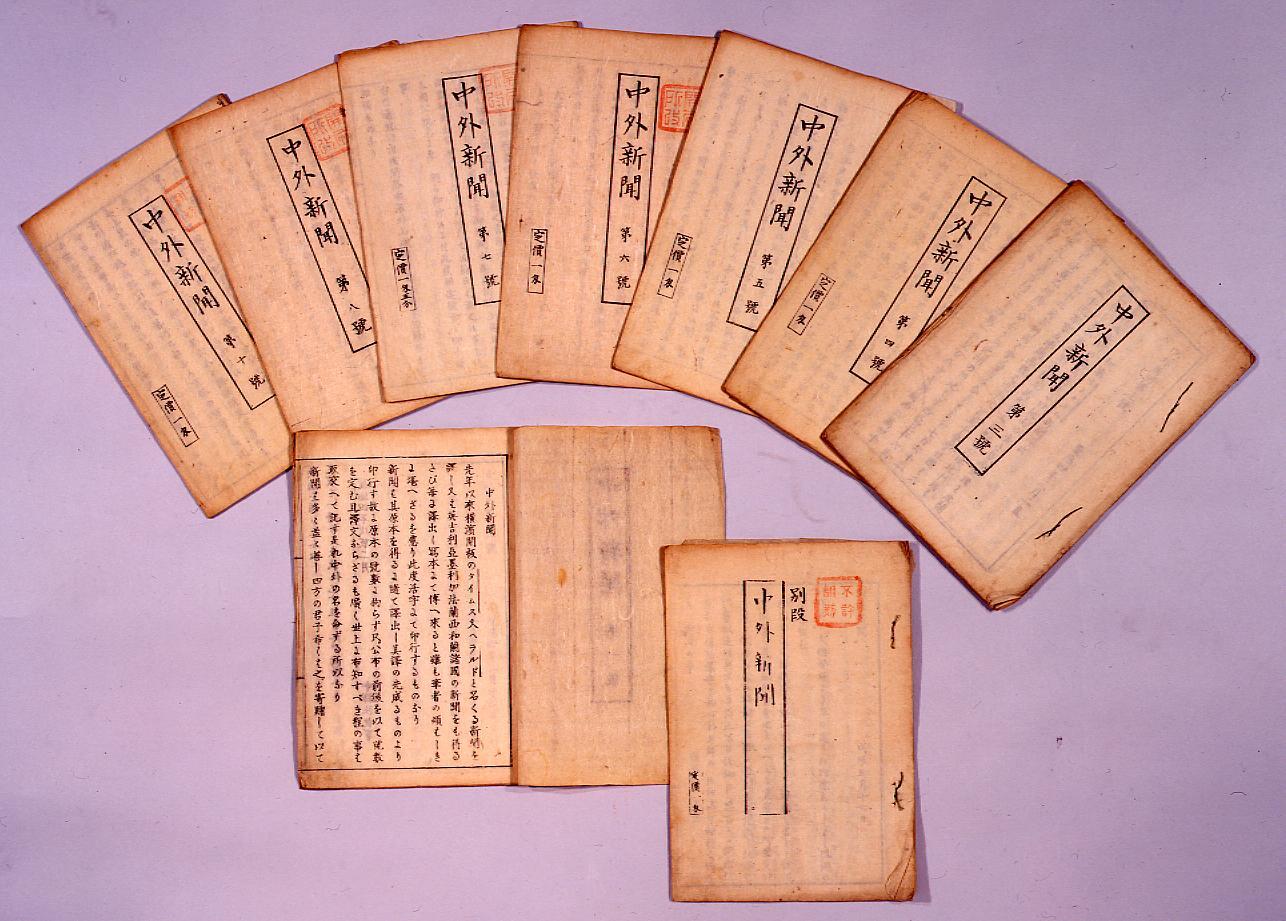 中外新聞 第十號
定價一匁
中外新聞 第八號
中外新聞 第七號
定價一匁五分
中外新聞 第六號
定價一匁
中外新聞 第五號
定價一匁
中外新聞 第四號
定價一匁
中外新聞 第三號
中外新聞
先年以來横濱開板のタイムス又ヘラルドと名くる新聞を
譯し又は英吉利亞墨利加法蘭西和蘭諸國の新聞をも得る
たび毎に譯出し寫本にて傳へ來ると雖も筆者の煩はしき
に堪へざるを憂り此度活字にて印行するものなり
新聞は其原本を得るに隨て譯出し其譯の完成るものより
印行す故に原本の號數に拘らず只公布の前後を以て號數
を定む且譯文ならざるも廣く世上に布知すべき程の事は
取交へて記す是れ中外の名を命ずる所以なり
新聞は多く益々善し四方の君子希くは之を寄贈して以て
不許
別段
中外新聞
定價一匁